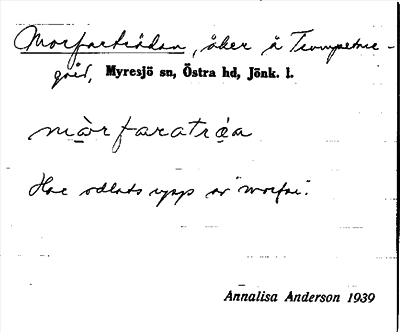 Morfarträdan, åker å Trumpetare-
gård, Myresjö sn, Östra hd, Jönk. l.
mòrfaratráa
Har odlats upp av "morfar".
Annalisa Anderson 1939